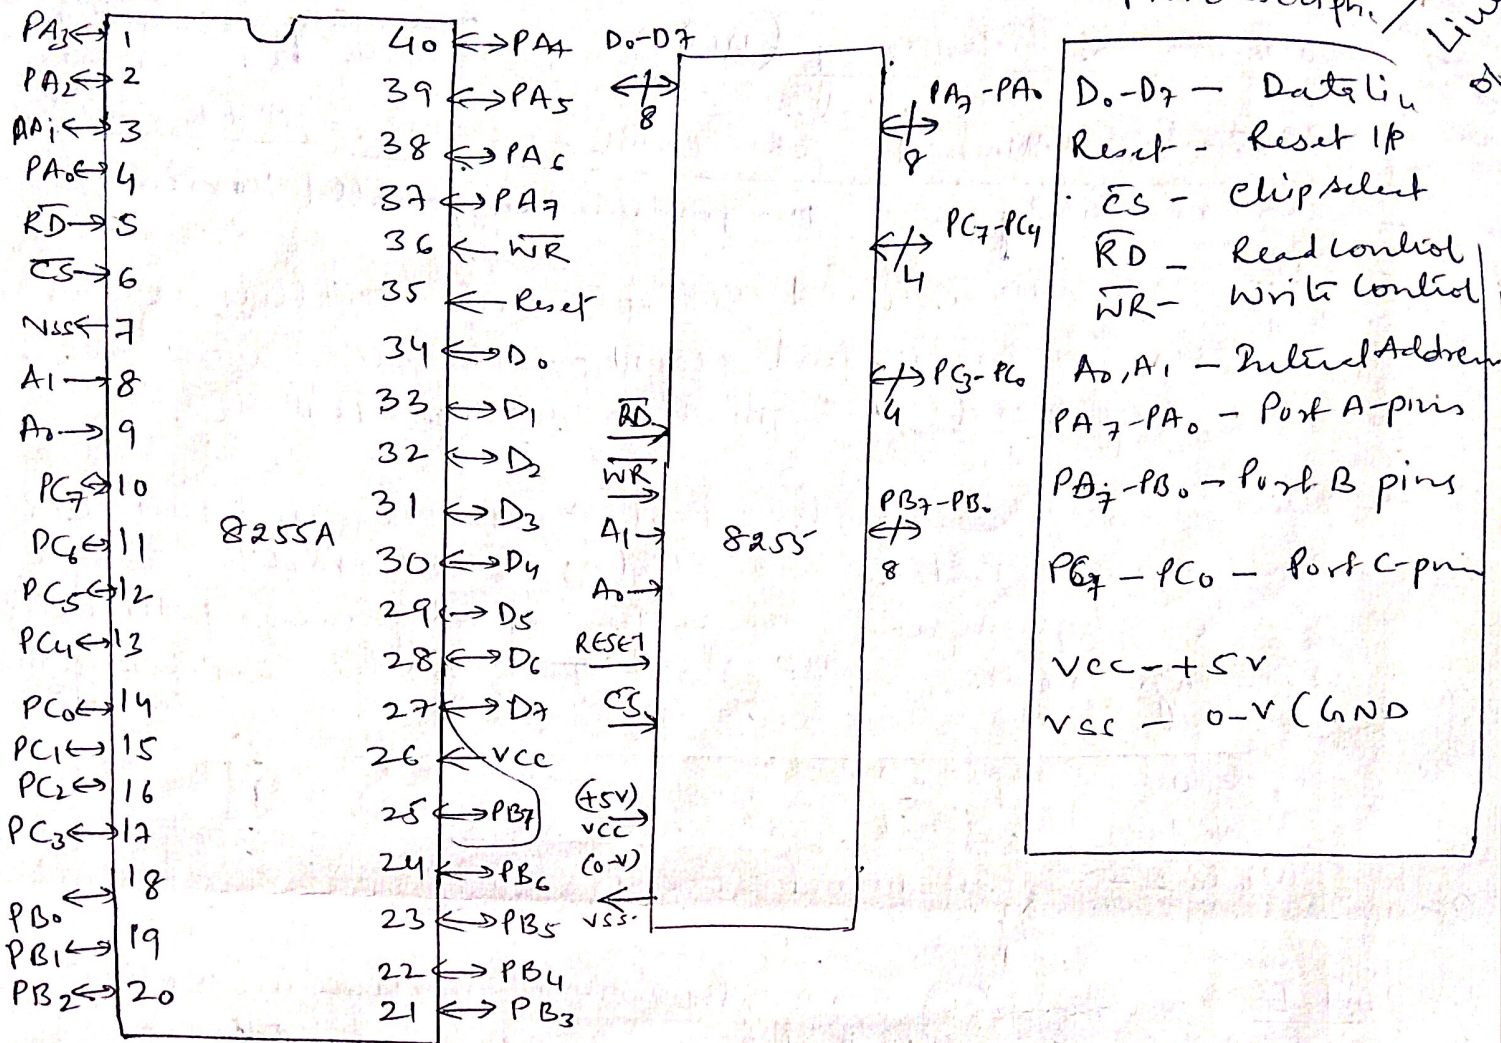 PA3 1
PA2 2
PA1 3
PA0 4
R̅D̅ 5
C̅S̅ 6
VSS 7
A1 8
A0 9
PC7 10
PC6 11
PC5 12
PC4 13
PC0 14
PC1 15
PC2 16
PC3 17
PB0 18
PB1 19
PB2 20
8255A
40 PA4
39 PA5
38 PA6
37 PA7
36 W̅R̅
35 Reset
34 D0
33 D1
32 D2
31 D3
30 D4
29 D5
28 D6
27 D7
26 VCC
25 PB7
24 PB6
23 PB5
22 PB4
21 PB3
D0-D7
8
R̅D̅
W̅R̅
A1
A0
RESET
C̅S̅
(+5V)
VCC
(0-V)
VSS.
8255
PA7-PA0
8
PC7-PC4
4
PC3-PC0
4
PB7-PB0
8
D0-D7 —
Reset - Reset I/P
C̅S̅ - Chip select
R̅D̅ - Read control
W̅R̅ - Write Control
A0, A1 - Address
PA7-PA0 - Port A-pins
-PB0 - Port B pins
PC7 - PC0 - Port C-pin
VCC - +5V
VSS - 0-V (GND